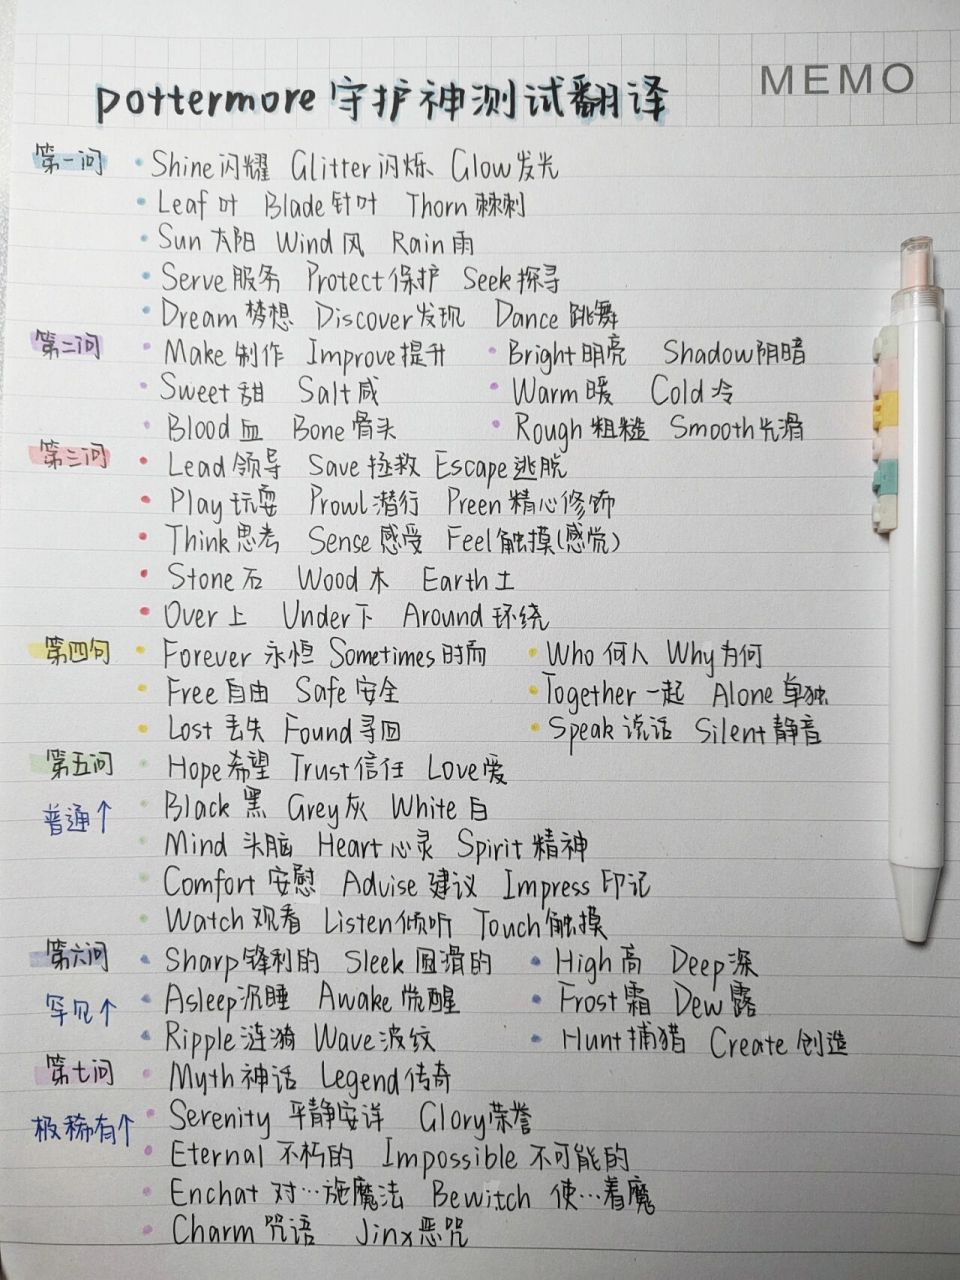 MEMO
pottermore 守护神测试翻译
第一问 Shine 闪耀 Glitter 闪烁、Glow 发光
Leaf 叶 Blade 针叶 Thorn 棘刺
Sun 太阳 Wind 风 Rain 雨
Serve 服务 Protect 保护 Seek 探寻
Dream 梦想 Discover 发现 Dance 跳舞
第二问 Make 制作 Improve 提升 Bright 明亮 Shadow 阴暗
Sweet 甜 Salt 咸 Warm 暖 Cold 冷
Blood 血 Bone 骨头 Rough 粗糙 Smooth 光滑
第三问 Lead 领导 Save 拯救 Escape 逃脱
Play 玩耍 Prowl 潜行 Preen 精心修饰
Think 思考 Sense 感受 Feel 触摸(感觉)
Stone 石 Wood 木 Earth 土
Over 上 Under 下 Around 环绕
第四句 Forever 永恒 Sometimes 时而 Who 何人 Why 为何
Free 自由 Safe 安全 Together 一起 Alone 单独
Lost 丢失 Found 寻回 Speak 说话 Silent 静音
第五问 Hope 希望 Trust 信任 Love 爱
普通↑ Black 黑 Grey 灰 White 白
Mind 头脑 Heart 心灵 Spirit 精神
Comfort 安慰 Advise 建议 Impress 印记
Watch 观看 Listen 倾听 Touch 触摸
第六问 Sharp 锋利的 Sleek 圆滑的 High 高 Deep 深
罕见↑ Asleep 沉睡 Awake 觉醒 Frost 霜 Dew 露
Ripple 涟漪 Wave 波纹 Hunt 捕猎 Create 创造
第七问 Myth 神话 Legend 传奇
极稀有↑ Serenity 平静安详 Glory 荣誉
Eternal 不朽的 Impossible 不可能的
Enchat 对…施魔法 Bewitch 使…着魔
Charm 咒语 Jinx 恶咒